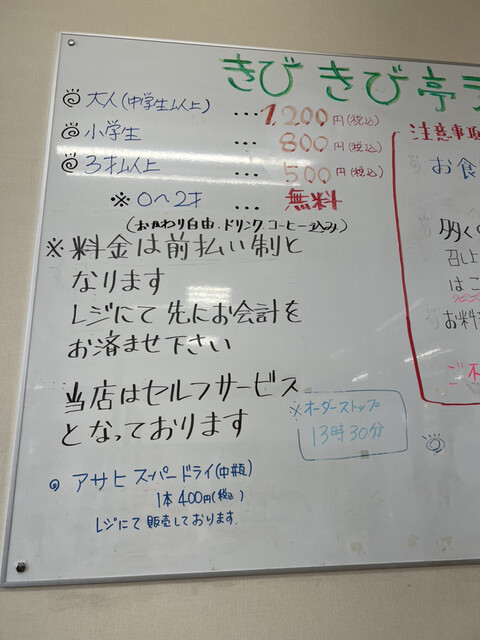 きび きび 亭
大人(中学生以上) … 1,200円(税込)
小学生 … 800円(税込)
3才以上 … 500円(税込)
※ 0〜2才 … 無料
(おかわり自由・ドリンク、コーヒー込み)
※料金は前払い制と
なります
レジにて先にお会計を
お済ませ下さい
当店はセルフサービス
となっております
※オーダーストップ
13時30分
アサヒ スーパードライ(中瓶)
1本400円(税込)
レジにて販売しております.
注意事項
お食
多く
召し上
はこ
お料